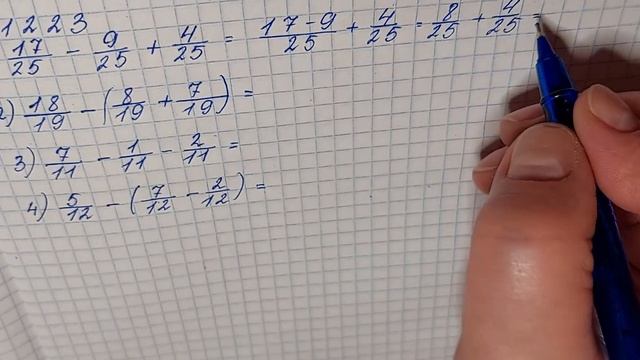 1223
17/25 - 9/25 + 4/25 = (17-9)/25 + 4/25 = 8/25 + 4/25 =
2) 18/19 - (8/19 + 7/19) =
3) 7/11 - 1/11 - 2/11 =
4) 5/12 - (7/12 - 2/12) =